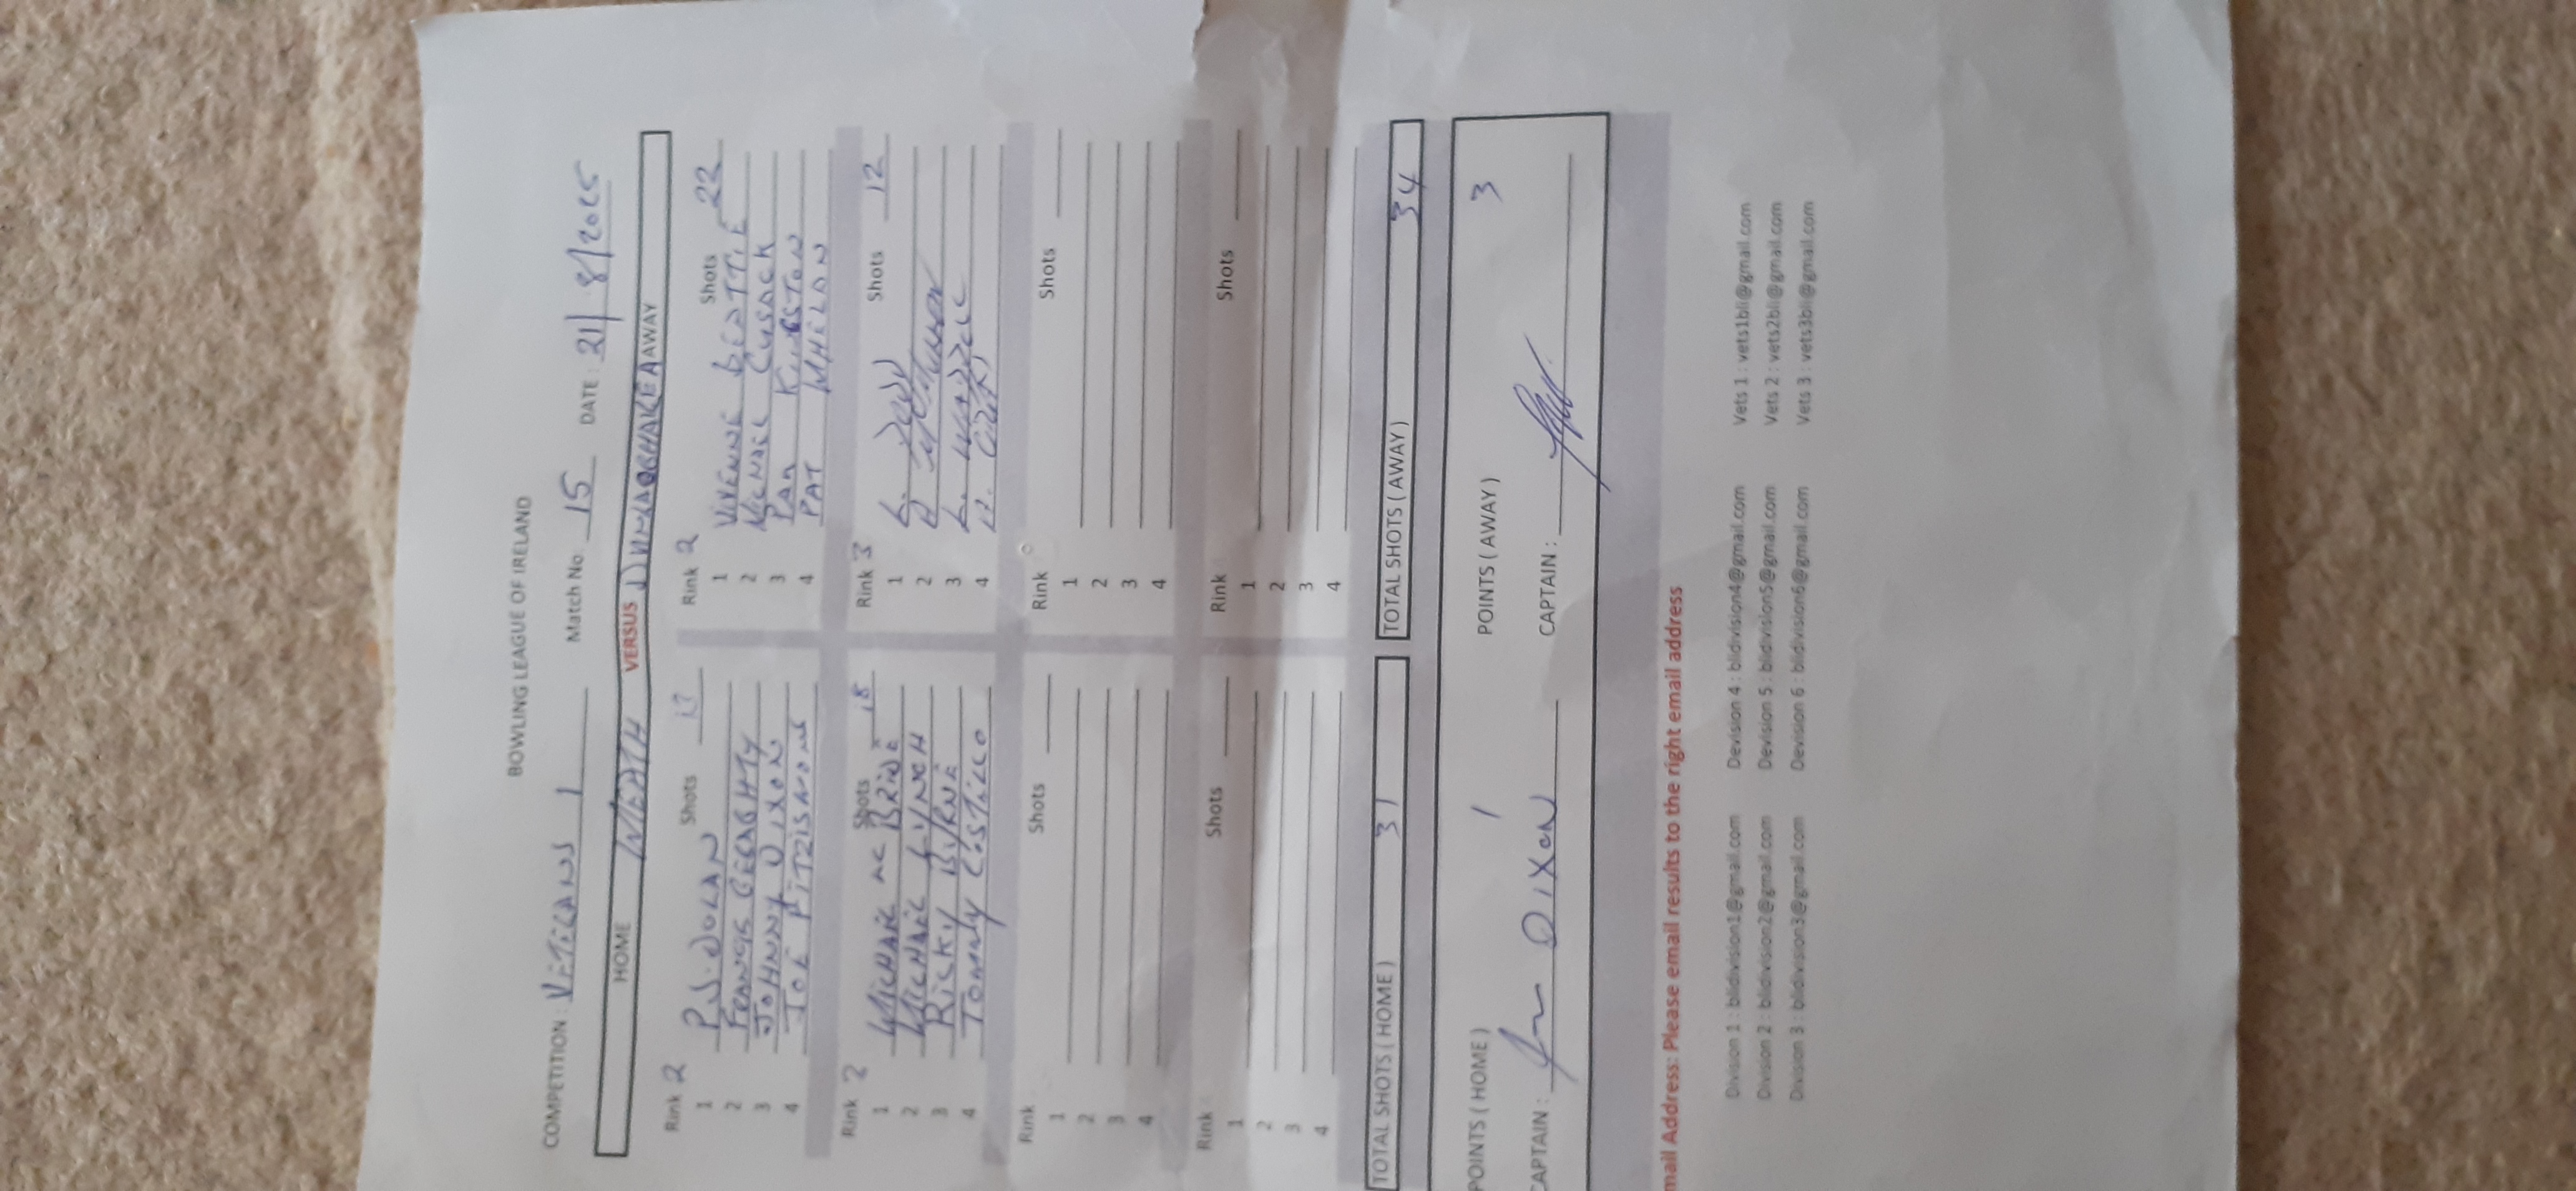 BOWLING LEAGUE OF IRELAND
COMPETITION : VETERANS 1 Match No 15 DATE : 21/8/2025
HOME MEATH VERSUS AWAY
Rink 2 Shots 13 Rink 2 Shots 22
1 P.J. DOLAN 1 VIVENNE BEATTIE
2 FRANCIS GERAGHTY 2 CUSACK
3 JOHNNY DIXON 3
4 JOE FITZSIMONS 4 PAT WHELAN
Rink Shots 18 Rink 3 Shots 12
1 MICHAEL MC BRIDE 1
2 MICHAEL LYNCH 2
3 RICKY BYRNE 3
4 TOMMY COSTELLO 4
Rink Shots Rink Shots
1 1
2 2
3 3
4 4
Rink Shots Rink Shots
1 1
2 2
3 3
4 4
TOTAL SHOTS ( HOME ) 31 TOTAL SHOTS ( AWAY ) 34
POINTS ( HOME ) 1 POINTS ( AWAY ) 3
CAPTAIN : DIXON CAPTAIN :
mail Address: Please email results to the right email address
Division 1 : blidivision1@gmail.com Devision 4 : blidivision4@gmail.com Vets 1 : vets1bli@gmail.com
Division 2 : blidivision2@gmail.com Devision 5 : blidivision5@gmail.com Vets 2 : vets2bli@gmail.com
Division 3 : blidivision3@gmail.com Devision 6 : blidivision6@gmail.com Vets 3 : vets3bli@gmail.com